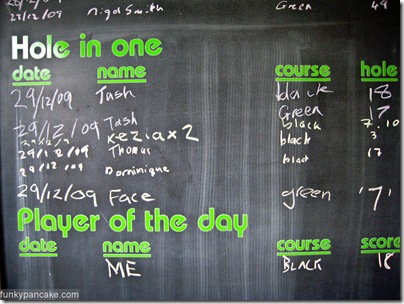 Nigel Smith Green 49
Hole in one
date name course hole
29/12/09 Tash black 18
29/12/09 Tash Green 7
Kezia x 2 black 7.10
29/12/09 Thomas black 3
29/12/09 Dominique black 17
29/12/09 Face green '7'
Player of the day
date name course score
ME BLACK 18
funkypancake.com